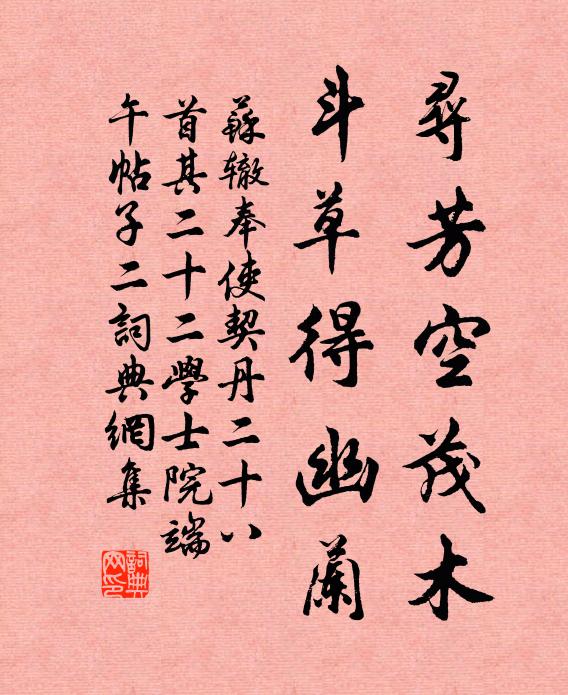 尋芳空茂木
斗草得幽蘭
蘇辙奉使契丹二十八
首其二十二學士院端
午帖子二詞典網集
詞典網印